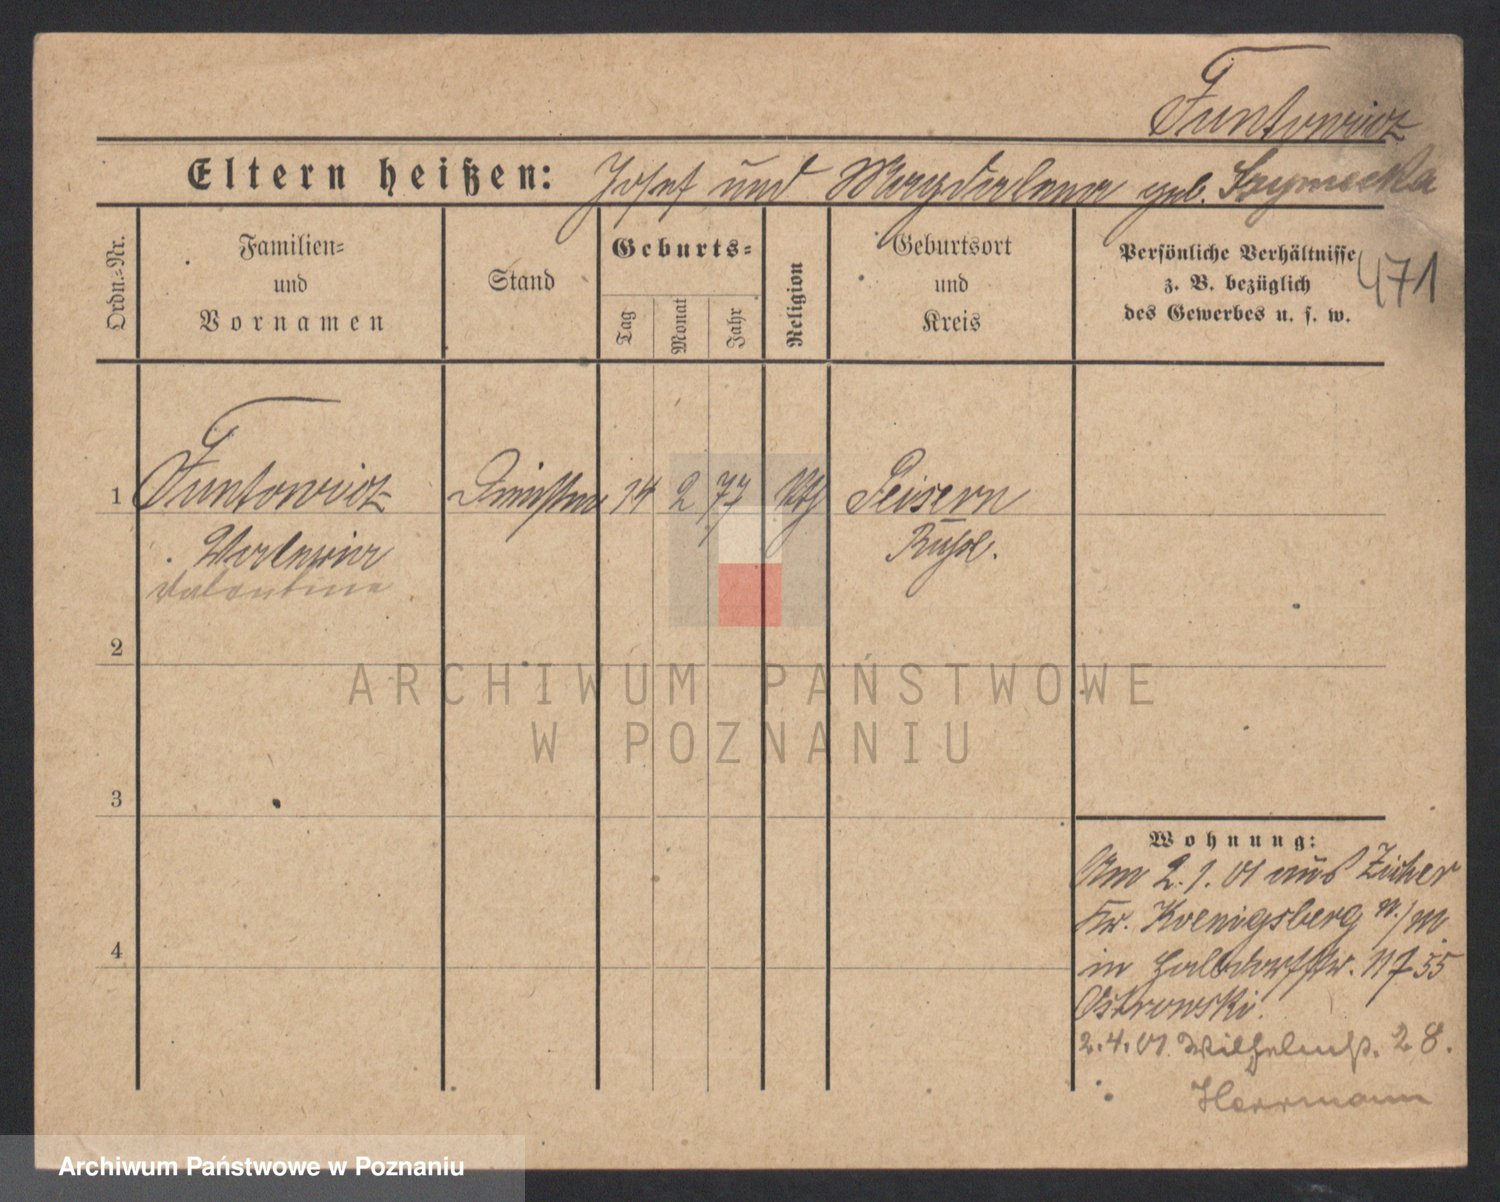 Funtowicz
Eltern heißen: Josef und Magdalena geb. Szymecka
471
Ordn.=Nr.
Familien=
und
Vornamen
Stand
Geburts=
Tag
Monat
Jahr
Religion
Geburtsort
und
Kreis
Persönliche Verhältnisse
z. B. bezüglich
des Gewerbes u. s. w.
1 Funtowicz 14 2 77 kth Peisern
Rußl.
Valentine
2
3
4
Wohnung:
Am 2.1.01 aus Zicher
Kr. Koenigsberg n/m
in Halbdorfstr. 55
Ostrowski.
2.4.01 Wilhelmst. 28.
Herrmann
ARCHIWUM PAŃSTWOWE
W POZNANIU
Archiwum Państwowe w Poznaniu